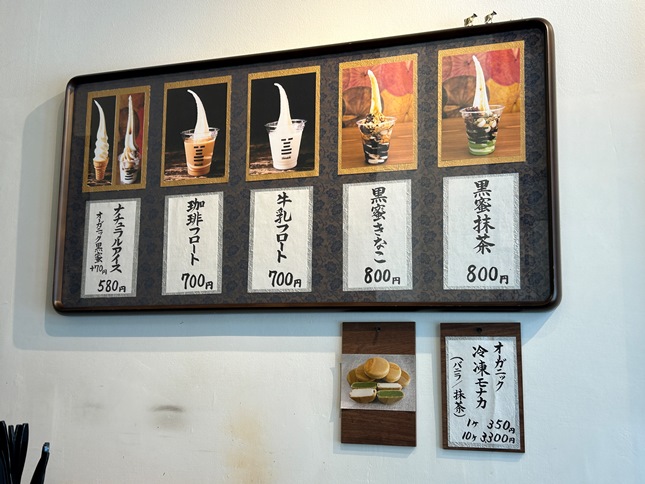 ナチュラルアイス
オーガニック黒蜜
+70円
580円
珈琲フロート
700円
牛乳フロート
700円
黒蜜きなこ
800円
黒蜜抹茶
800円
オーガニック
冷凍モナカ
(バニラ/抹茶)
1ヶ 350円
10ヶ 3300円